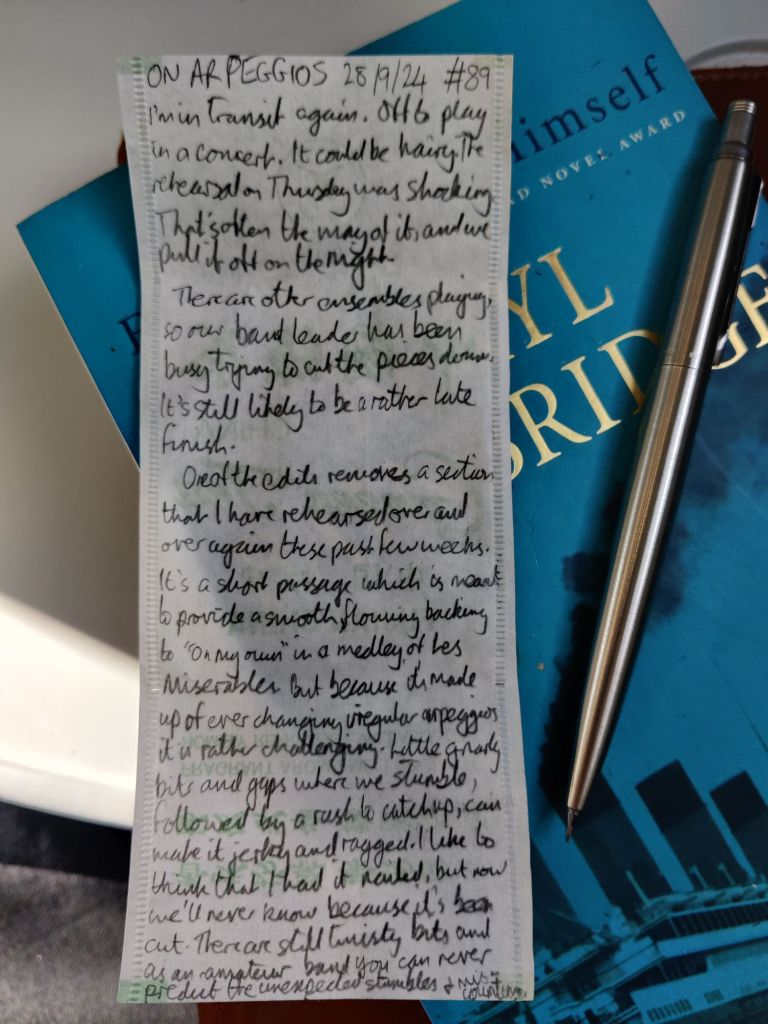 ON ARPEGGIOS 28/9/24 #89
I'm in transit again. Off to play
in a concert. It could be hairy. The
rehearsal on Thursday was shocking.
That's often the way of it, and we
pull it off on the night.
There are other ensembles playing,
so our band leader has been
busy trying to cut the pieces down.
It's still likely to be a rather late
finish.
One of the edits removes a section
that I have rehearsed over and
over again these past few weeks.
It's a short passage which is meant
to provide a smooth, flowing backing
to "On my own" in a medley of Les
Miserables. But because it's made
up of ever changing irregular arpeggios
it is rather challenging. Little gnarly
bits and gaps where we stumble,
followed by a rush to catch up, can
make it jerky and ragged. I like to
think that I had it nailed, but now
we'll never know because it's been
cut. There are still twisty bits and
as an amateur band you can never
predict the unexpected stumbles & mis-
counting.
himself
RD NOVEL AWARD
YL
BRIDGE
FRAGRANT